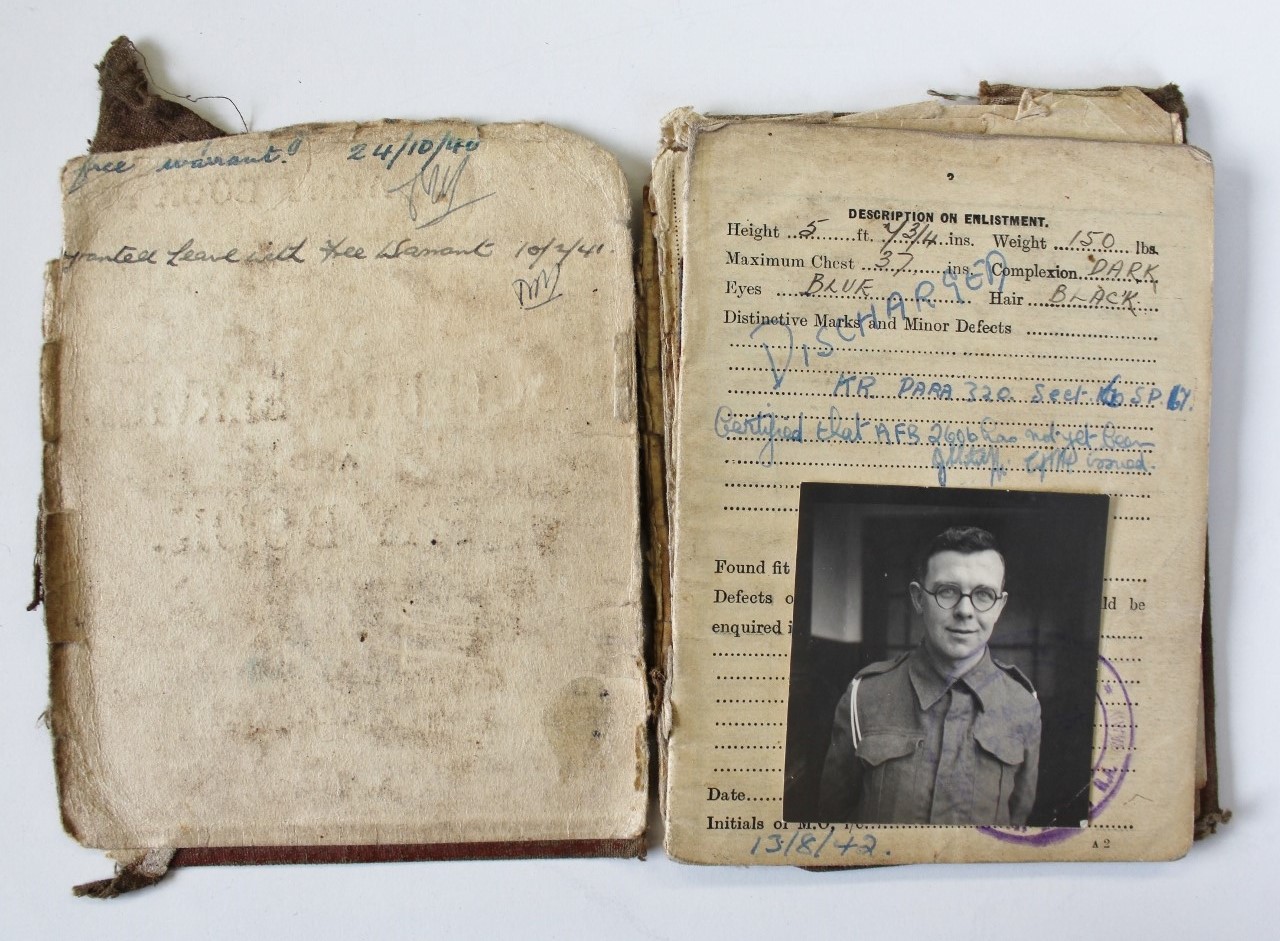 free warrant." 24/10/40
granted Leave with Free Warrant 10/2/41.
DESCRIPTION ON ENLISTMENT.
Height 5 ft. 7 3/4 ins. Weight 150 lbs.
Maximum Chest 37 ins. Complexion DARK
Eyes BLUE Hair BLACK.
Distinctive Marks and Minor Defects
DISCHARGED
KR. PARA 320 Sect. SP.
Certified that AFB 2606 has not yet been
issued.
Found fit
Defects o ld be
enquired i
Date
Initials of M.O. i/c.
13/8/42.
A 2
R.A.